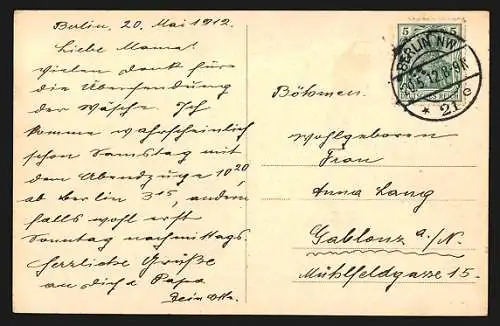 Berlin, 20. Mai 1912.
Liebe Mama!
Vielen Dank für
die Übersendung
der Wäsche. Ich
komme wahrscheinlich
schon Samstag mit
dem Abendzuge 10 20,
ab Berlin 3 15, andern
falls wohl erst
Sonntag nachmittags.
Herzliche Grüße
an dich & Papa
Dein Otto.
5 5
BERLIN NW
12.8-9N
* 21 c
Böhmen.
Wohlgeboren
Frau
Anna Lang
Gablonz a./N.
Mühlfeldgasse 15.